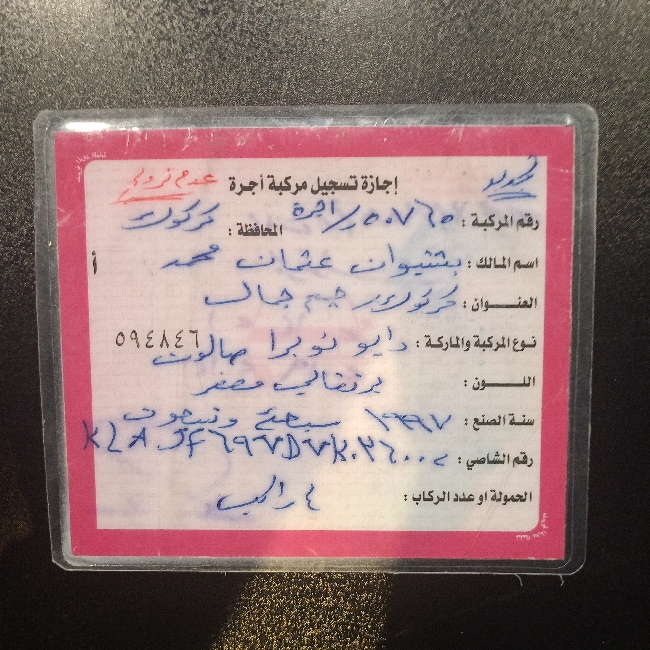 عدم تروم إجازة تسجيل مركبة أجرة تجديد
رقم المركبة : ٥٠٧٦٥ / اجرة المحافظة : كركوك
اسم المالك : بشتيوان عثمان محمد أ
العنـــوان : كركوك جم جمال
نوع المركبة والماركة : دايو نوبرا صالون ٥٩٤٨٤٦
اللــــون : برتقالي مصفر
سنة الصنع : ١٩٩٧ سبعة وتسعون
رقم الشاصي :
الحمولة او عدد الركاب : ٤ راكب